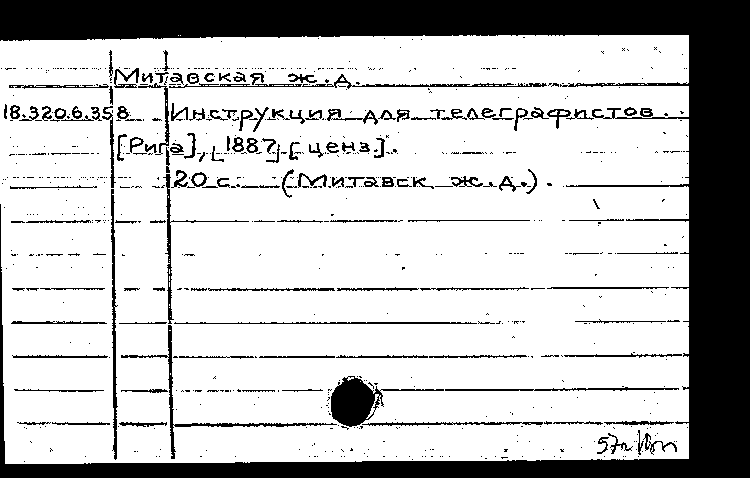 Митавская ж.д.
18.320.6.358 Инструкция для телеграфистов.
[Рига], [1887] [ценз].
20 с. (Митавск. ж.д.).